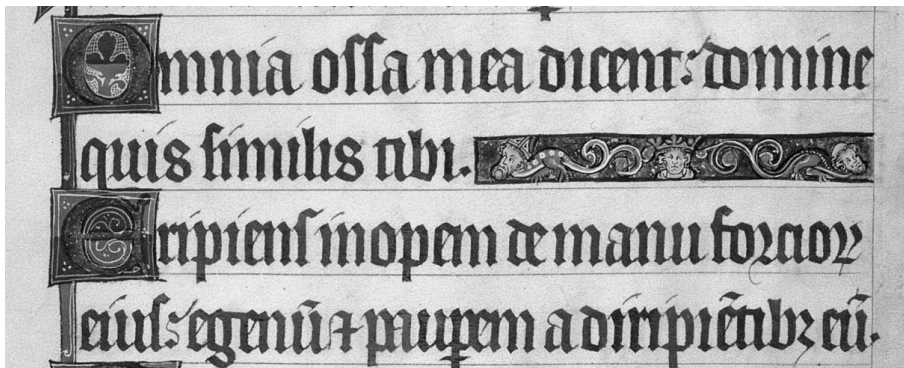 Omnia ossa mea dicent: domine
quis similis tibi.
Eripiens inopem de manu forcioꝝ
eius: egenū ⁊ pauꝑem a diripiētibꝫ eū.